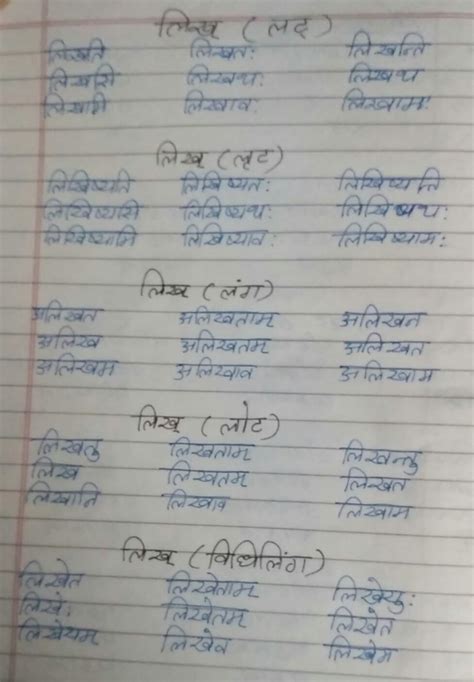 लिख् (लट्)
लिखति लिखतः लिखन्ति
लिखसि लिखथः लिखथ
लिखामि लिखावः लिखामः
लिख् (लृट)
लिखिष्यति लिखिष्यतः लिखिष्यन्ति
लिखिष्यसि लिखिष्यथः लिखिष्यथः
लिखिष्यामि लिखिष्यावः लिखिष्यामः
लिख् (लंग)
अलिखत अलिखताम् अलिखन
अलिख अलिखतम् अलिखत
अलिखम अलिखाव अलिखाम
लिख् (लोट)
लिखतु लिखताम् लिखन्तु
लिख लिखतम् लिखत
लिखानि लिखाव लिखाम
लिख् (विधिलिंग)
लिखेत लिखेताम् लिखेयुः
लिखेः लिखेतम् लिखेत
लिखेयम लिखेव लिखेम